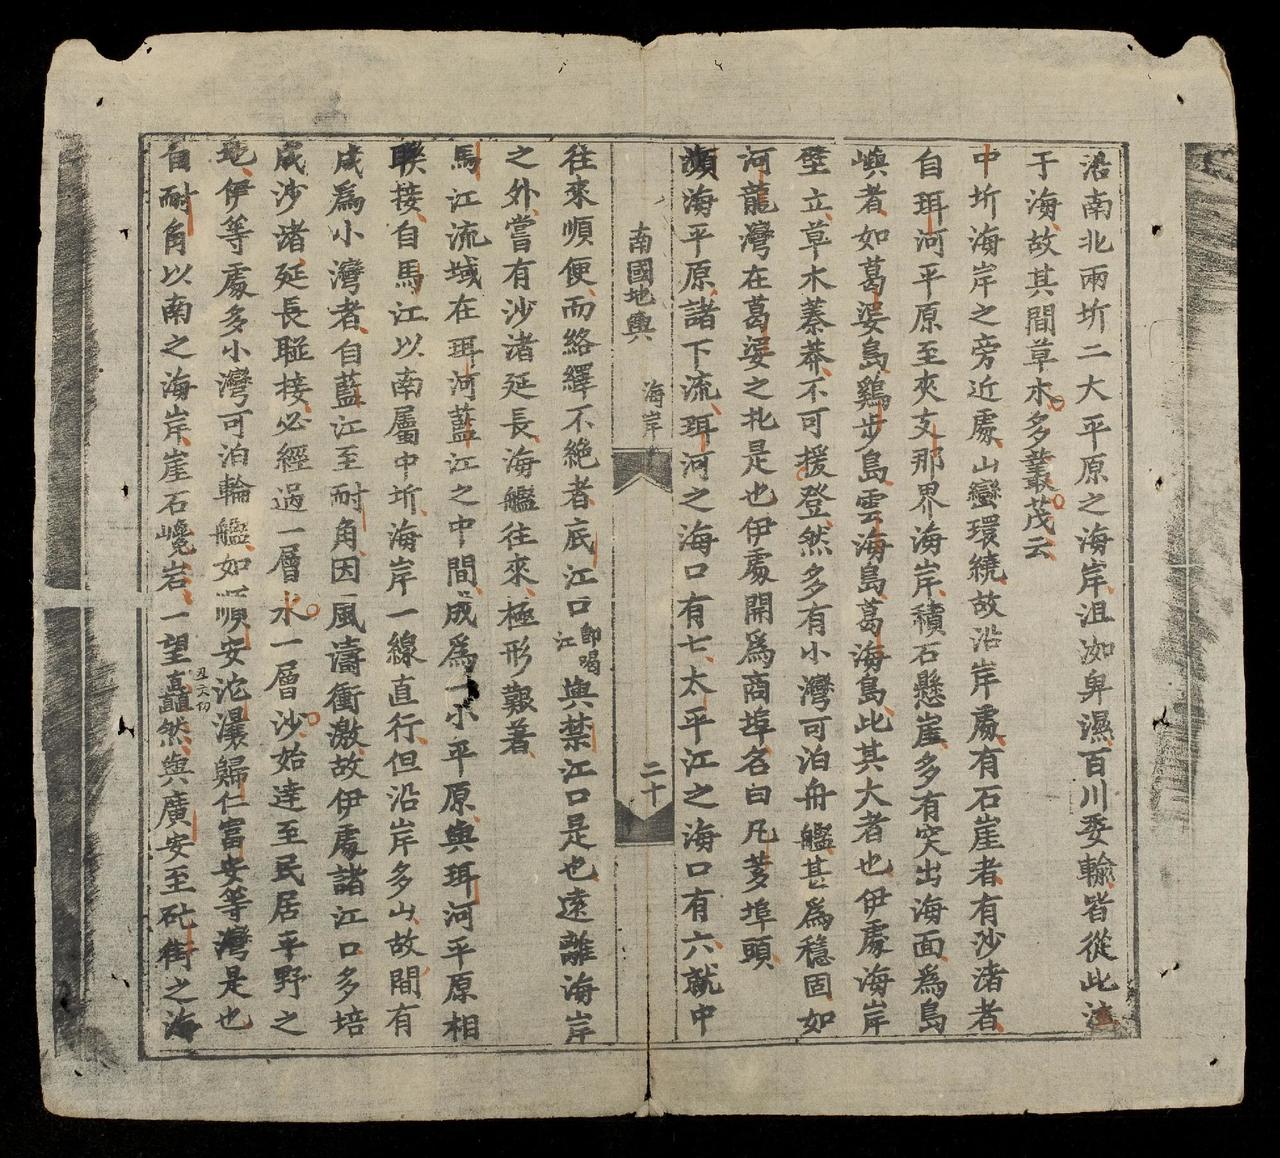 沿南北兩圻二大平原之海岸沮洳卑濕百川委輸皆從此注
于海故其間草木多叢茂云
中圻海岸之旁近處山巒環繞故沿岸處有石崖者有沙渚者
自珥河平原至夾支那界海岸積石懸崖多有突出海面為島
嶼者如葛婆島鷄步島雲海島葛海島此其大者也伊處海岸
壁立草木蓁莽不可援登然多有小灣可泊舟艦甚為穩固如
河龍灣在葛婆之北是也伊處開為商埠名曰凡爹埠頭
瀕海平原諸下流珥河之海口有七太平江之海口有六就中
南國地輿 海岸 二十
往來順便而絡繹不絶者底江口即喝江與禁江口是也遠離海岸
之外嘗有沙渚延長海艦往來極形艱著
馬江流域在珥河藍江之中間成為一小平原與珥河平原相
聯接自馬江以南屬中圻海岸一線直行但沿岸多山故間有
成為小灣者自藍江至耐角因風濤衝激故伊處諸江口多培
成沙渚延長聯接必經過一層水一層沙始達至民居平野之
地伊等處多小灣可泊輪艦如順安沱灢歸仁富安等灣是也
自耐角以南之海岸崖石巉岩一望矗丑六切然與廣安至砒街之海